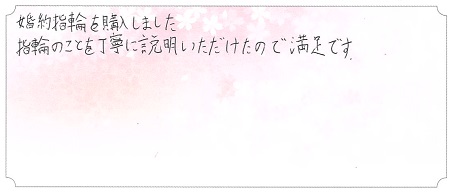 婚約指輪を購入しました
指輪のことを丁寧に説明いただけたので満足です。